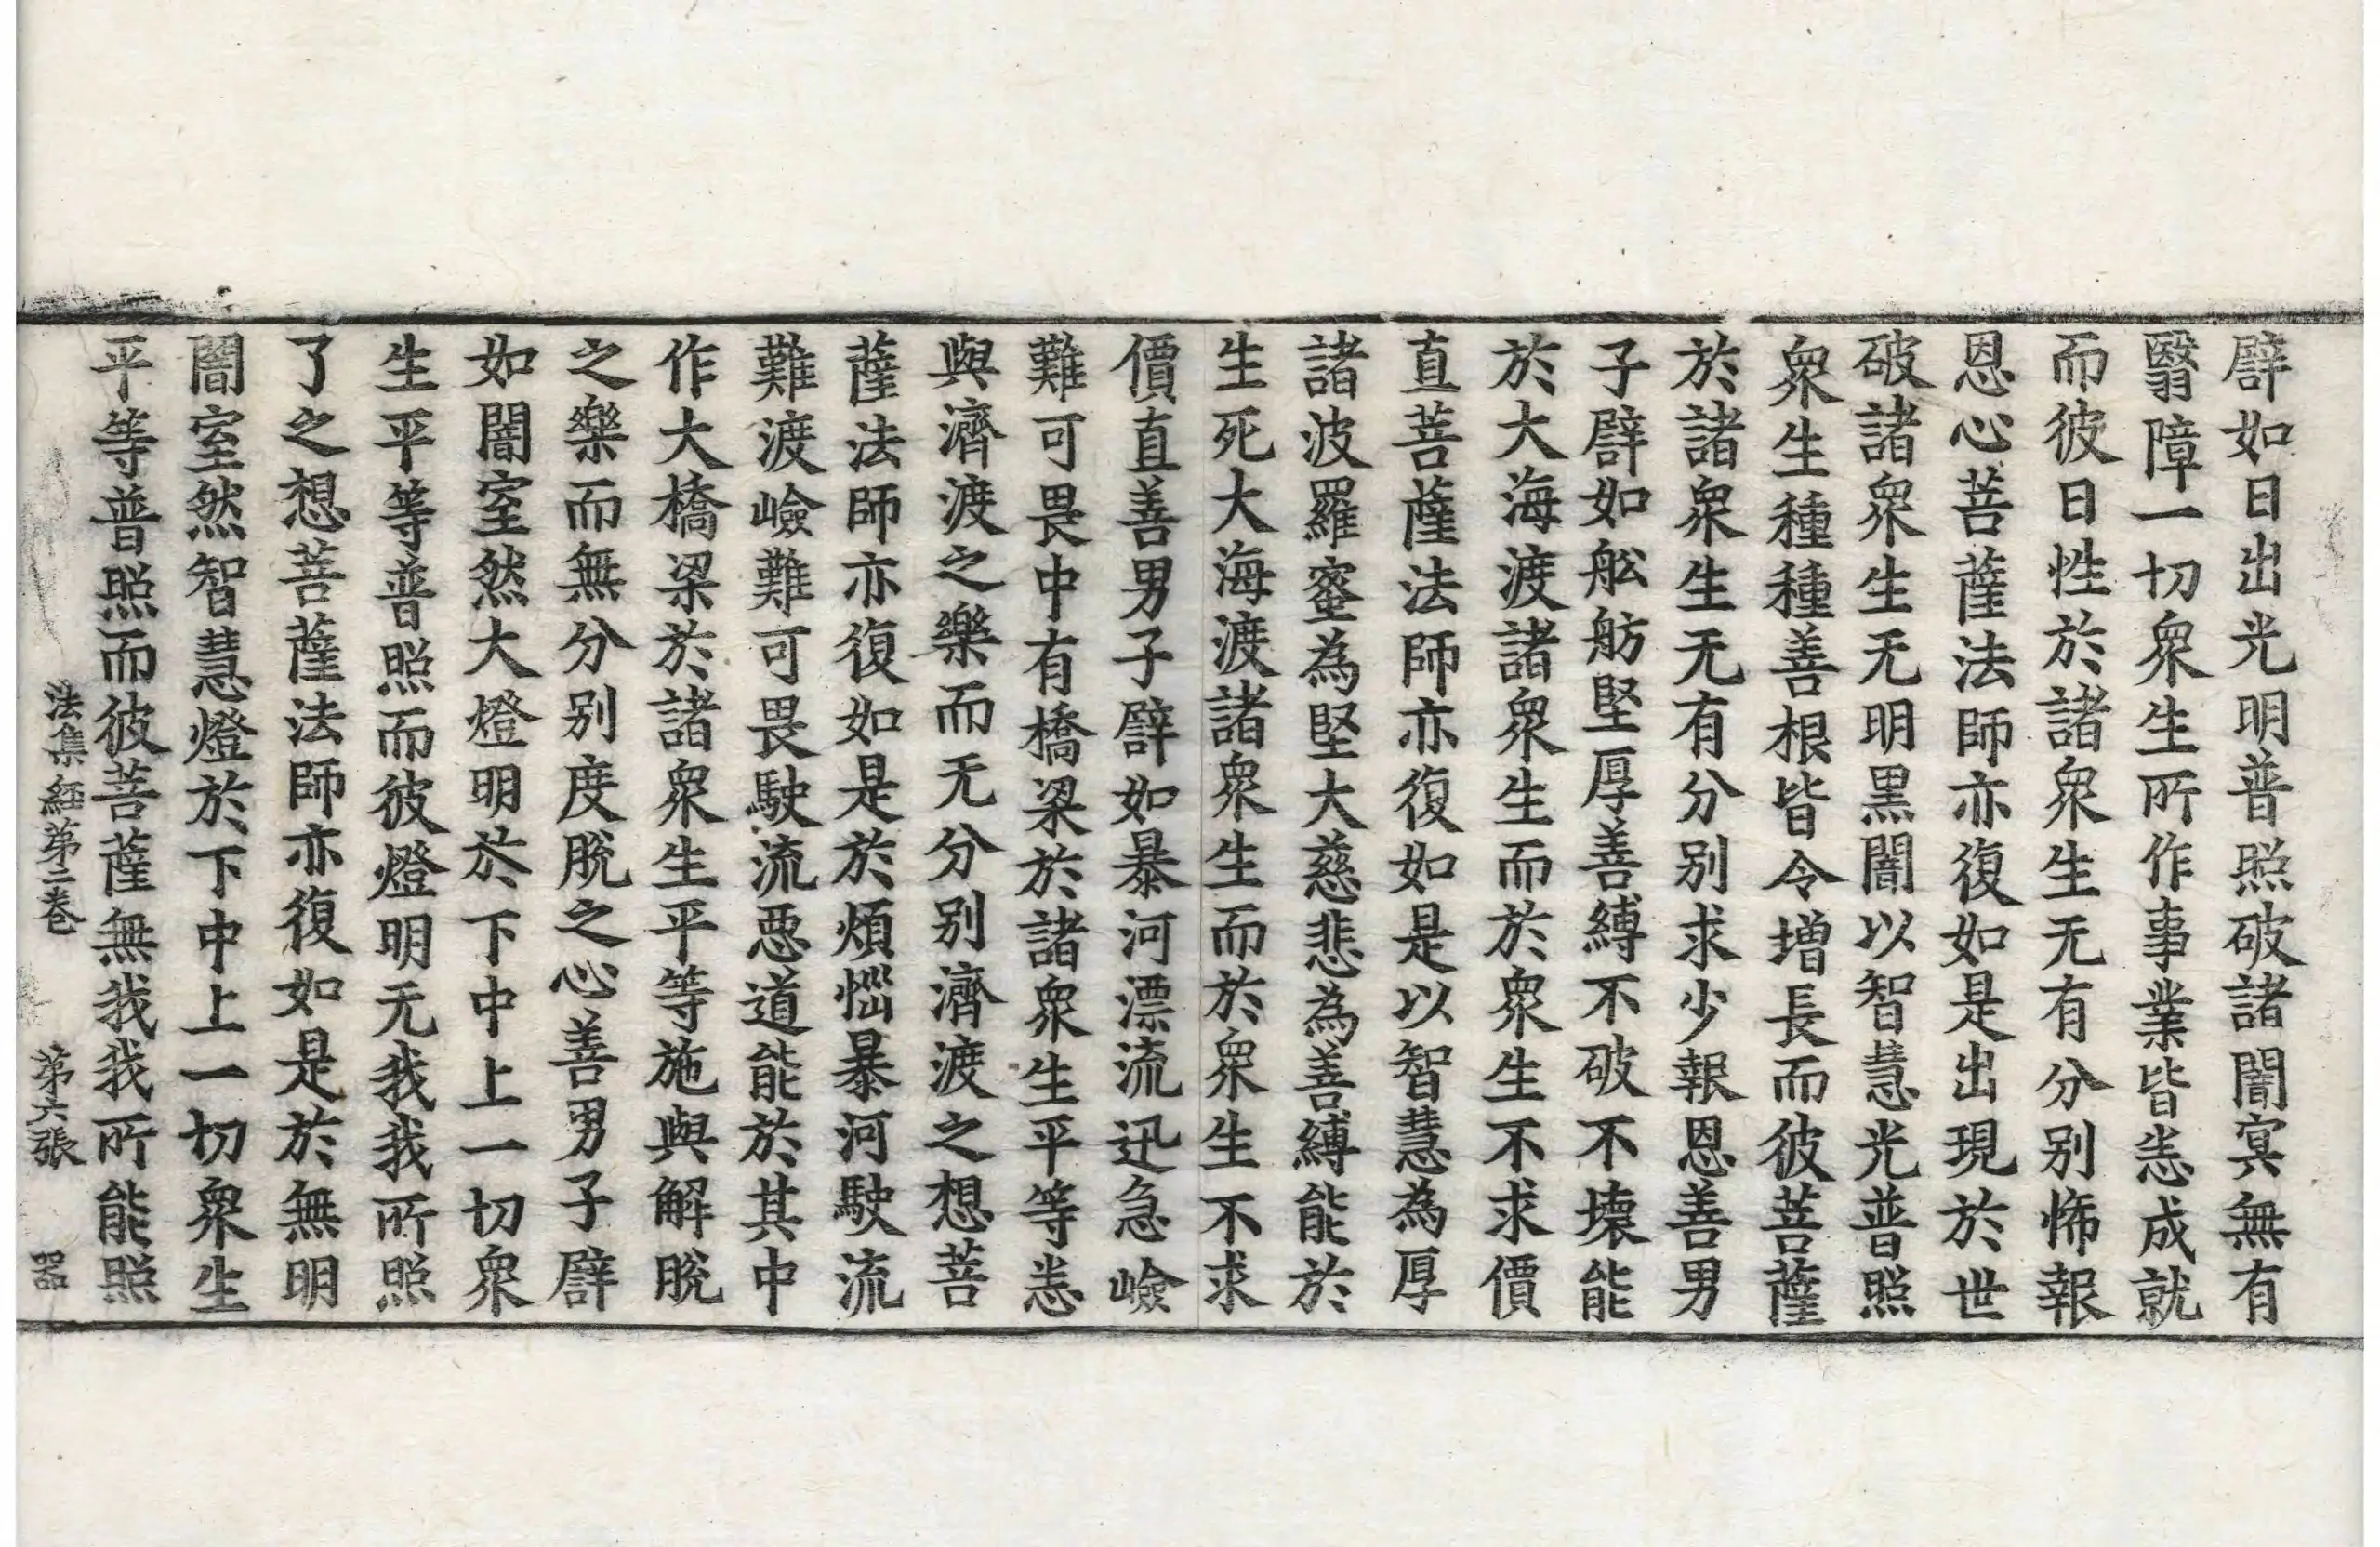 譬如日出光明普照破諸闇冥無有
翳障一切衆生所作事業皆悉成就
而彼日性於諸衆生无有分别怖報
恩心菩薩法師亦復如是出現於世
破諸衆生无明黑闇以智慧光普照
衆生種種善根皆令增長而彼菩薩
於諸衆生无有分别求少報恩善男
子譬如舩舫堅厚善縛不破不壊能
於大海渡諸衆生而於衆生不求價
直菩薩法師亦復如是以智慧為厚
諸波羅蜜為堅大慈悲為善縛能於
生死大海渡諸衆生而於衆生不求
價直善男子譬如暴河漂流迅急嶮
難可畏中有橋梁於諸衆生平等悉
與濟渡之樂而无分别濟渡之想菩
薩法師亦復如是於煩惱暴河駛流
難渡嶮難可畏駛流惡道能於其中
作大橋梁於諸衆生平等施與解脫
之樂而無分别度脫之心善男子譬
如闇室然大燈明於下中上一切衆
生平等普照而彼燈明无我我所照
了之想菩薩法師亦復如是於無明
闇室然智慧燈於下中上一切衆生
平等普照而彼菩薩無我我所能照
法集經第二卷 第六張 器